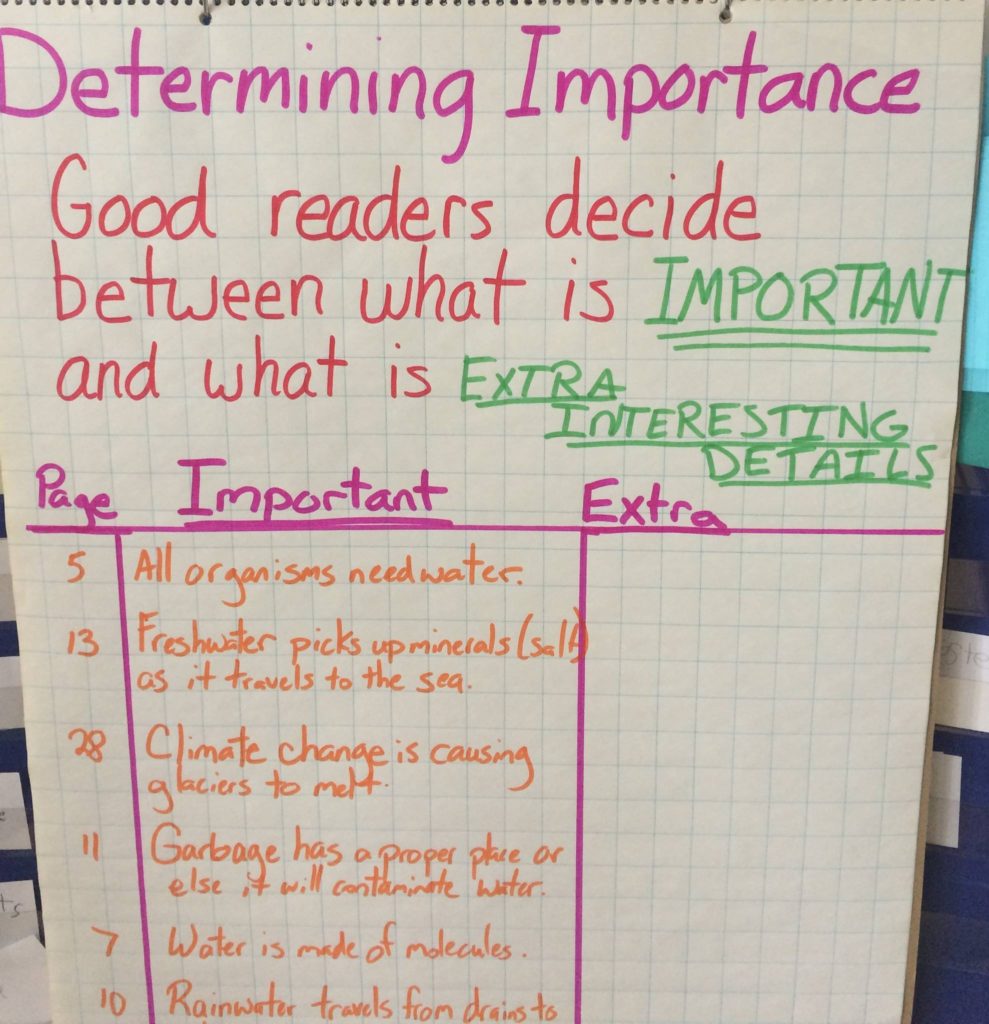 Determining Importance
Good readers decide
between what is IMPORTANT
and what is EXTRA
INTERESTING
DETAILS
Page Important Extra
5 All organisms need water.
13 Freshwater picks up minerals (salt)
as it travels to the sea.
28 Climate change is causing
glaciers to melt.
11 Garbage has a proper place or
else it will contaminate water.
7 Water is made of molecules.
10 Rainwater travels from drains to